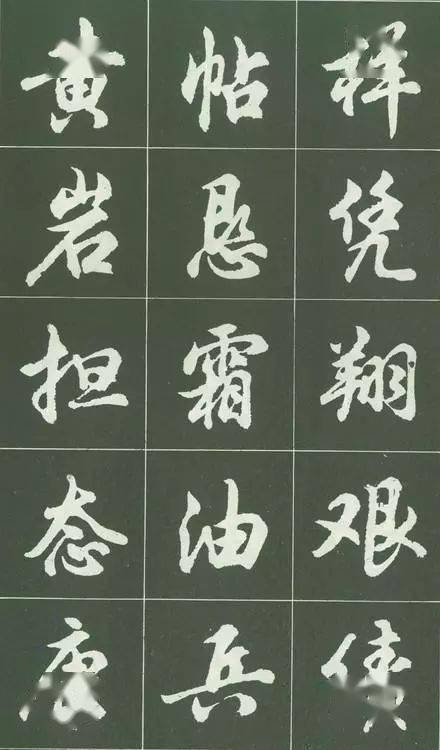 样凭翔艰债
帖悬霜油兵
黄岩担态